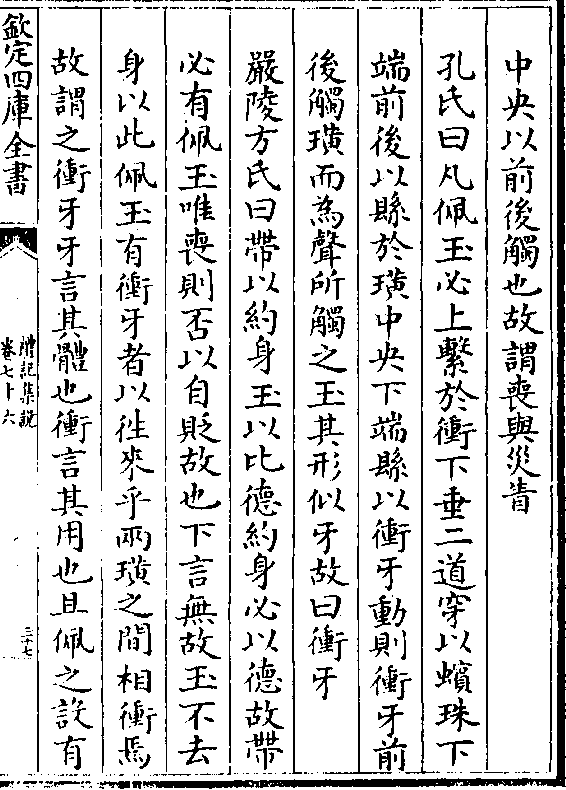 中央以前後觸也故謂喪與災眚
孔氏曰凡佩玉必上繫於衝下垂二道穿以蠙珠下
端前後以縣於璜中央下端縣以衝牙動則衝牙前
後觸璜而為聲所觸之玉其形似牙故曰衝牙
嚴陵方氏曰帶以約身玉以比德約身必以德故帶
必有佩玉唯喪則否以自貶故也下言無故玉不去
身以此佩玉有衝牙者以徃來乎兩璜之間相衝焉
故謂之衝牙牙言其體也衝言其用也且佩之設有
欽定四庫全書
禮記集說
卷七十六
三十七